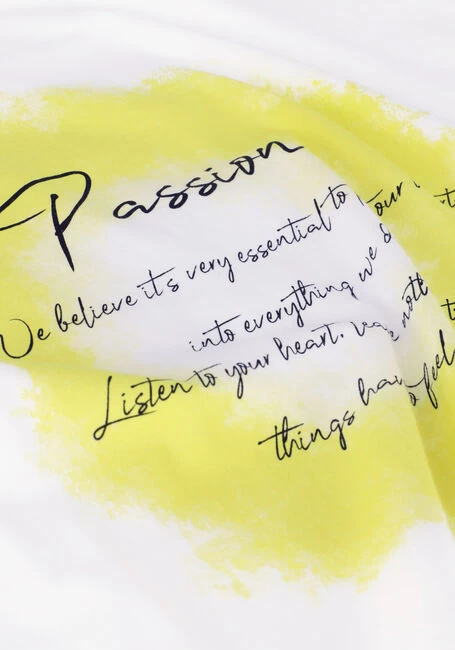 Passion
We believe it's very essential to
into everything we
Listen to your heart.
things